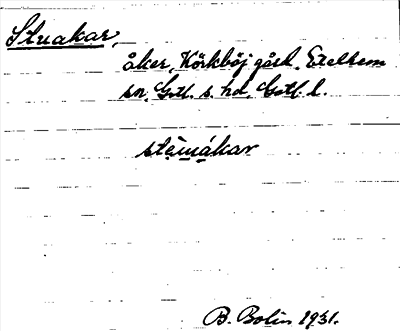 Stuakar,
åker, Hörkböj gård, Etelhem
sn, Gotl. s. hd, Gotl. l.
stèmákar
B. Bolin 1931.